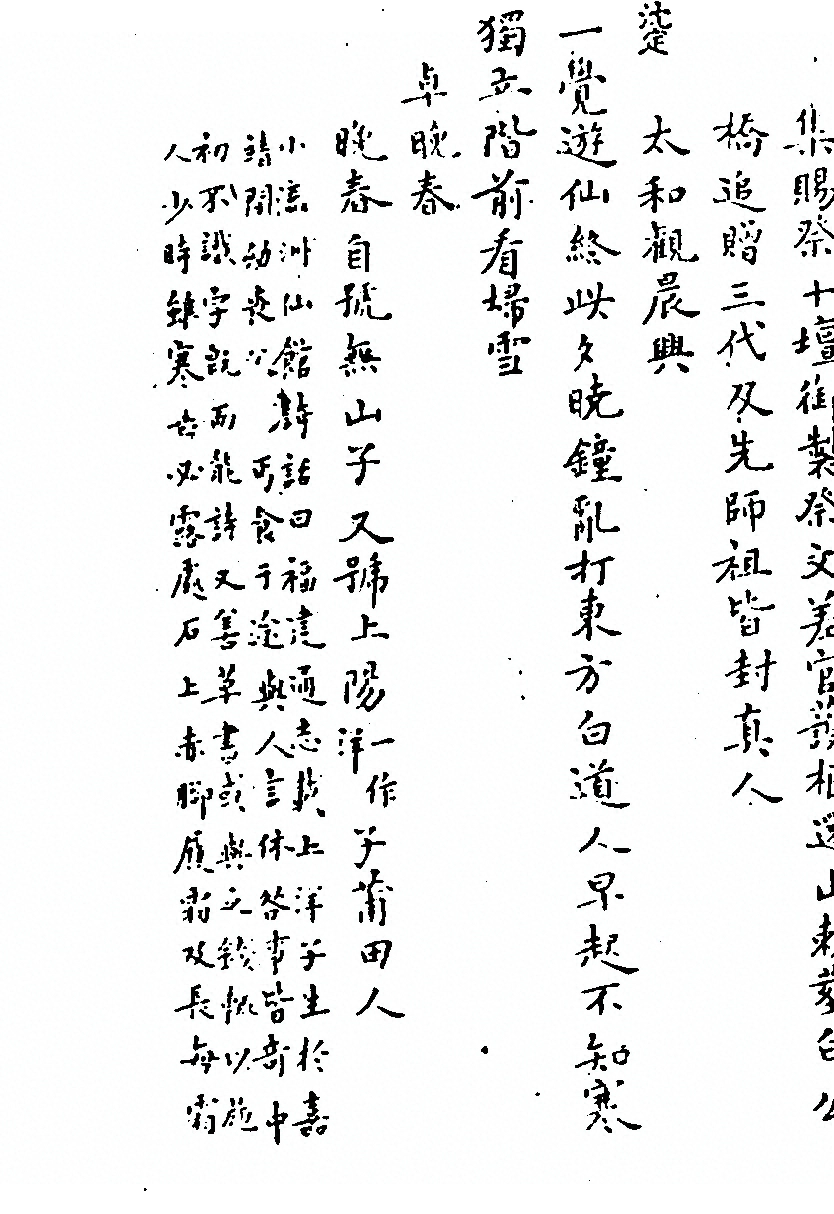 集賜祭十壇御製祭文差官護柩還山敕葬白公
橋追贈三代及先師祖皆封真人
太和觀晨興
一覺遊仙終此夕曉鐘亂打東方白道人早起不知寒
獨立階前看埽雪
卓晚春
晚春自號無山子又號上陽一作洋子莆田人
小瀛洲仙館詩話曰福建通志載上洋子生於嘉
靖間幼喪父丐食于途與人言休咎事皆奇中
初不識字既而能詩又善草書或與之錢輒以施
人少時雖寒亦必露處石上赤腳履霜及長每霜